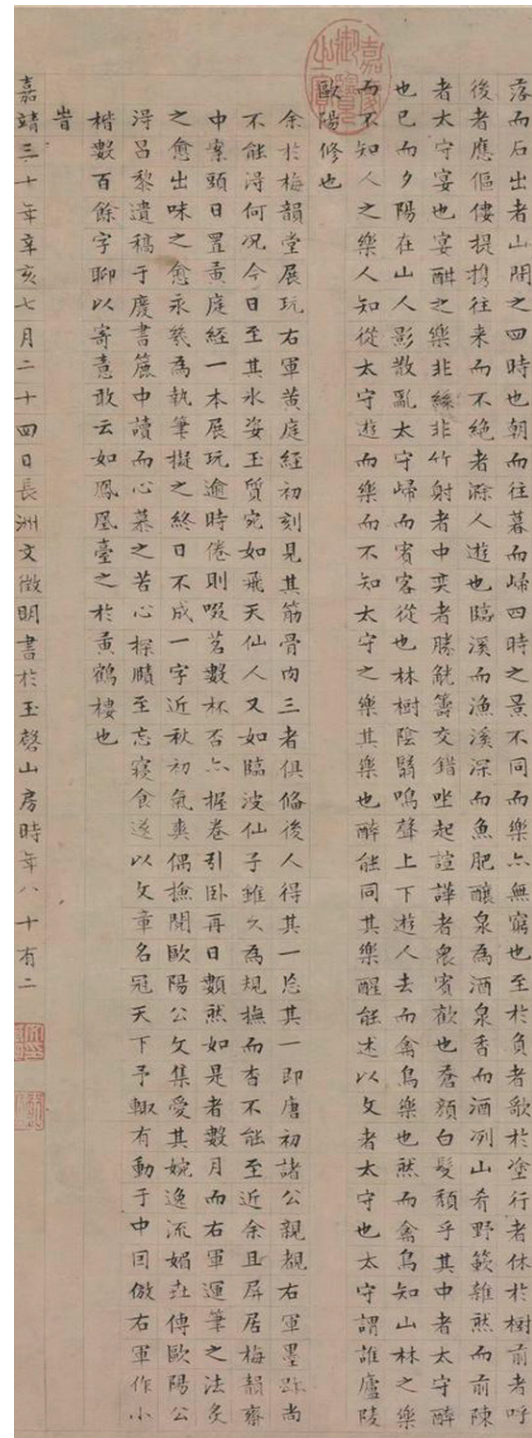 落而石出者山間之四時也朝而往暮而歸四時之景不同而樂亦無窮也至於負者歌於塗行者休於樹前者呼
後者應傴僂提攜往来而不絶者滁人遊也臨溪而漁溪深而魚肥釀泉為酒泉香而酒冽山肴野蔌雜然而前陳
者太守宴也宴酣之樂非絲非竹射者中奕者勝觥籌交錯坐起諠譁者衆賓歡也蒼顔白髮頹乎其中者太守醉
也已而夕陽在山人影散亂太守歸而賓客從也林樹陰翳鳴聲上下遊人去而禽鳥樂也然而禽鳥知山林之樂
而不知人之樂人知從太守遊而樂而不知太守之樂其樂也醉能同其樂醒能述以文者太守也太守謂誰廬陵
歐陽修也
余於梅韻堂展玩右軍黄庭經初刻見其筋骨肉三者俱備後人得其一忘其一即唐初諸公親覩右軍墨跡尚
不能淂何況今日至其氷姿玉質宛如飛天仙人又如臨波仙子雖久為規撫而杳不能至近余且屏居梅韻齋
中案頭日置黄庭經一本展玩逾時倦則啜茗數杯否亦握卷引卧再日數然如是者數月而右軍運筆之法炙
之愈出味之愈永㡬為執筆擬之終日不成一字近秋初氣爽偶撫閱歐陽公文集愛其婉逸流媚

淂吕黎遺稿于慶書簏中讀而心慕之苦心探賾至忘寝食遂以文章名冠天下予輙有動于中囙倣右軍作小
楷數百餘字聊以寄意敢云如鳳凰臺之於黄鶴樓也
旹
嘉靖三十年辛亥七月二十四日長洲文徴明書於玉磬山房時年八十有二
嘉慶御覽之寳